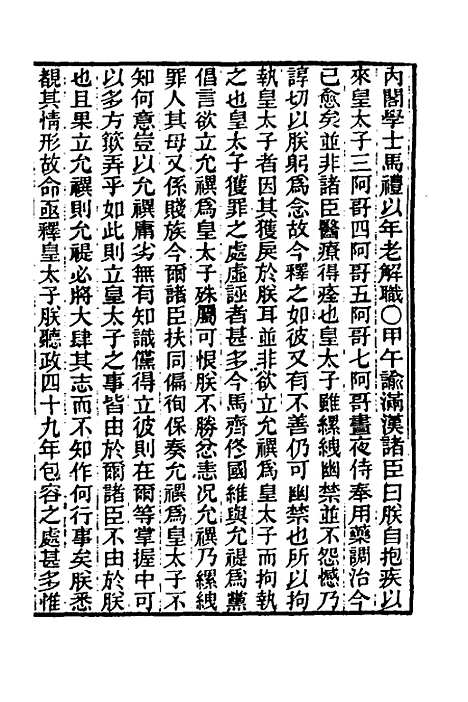 內閣學士馬禮以年老解職○甲午諭滿漢諸臣曰朕自抱疾以
來皇太子三阿哥四阿哥五阿哥七阿哥晝夜侍奉用藥調治今
已愈矣並非諸臣醫療得痊也皇太子雖縲絏幽禁並不怨憾乃
諄切以朕躬爲念故今釋之如彼又有不善仍可幽禁也所以拘
執皇太子者因其獲戾於朕耳並非欲立允禩爲皇太子而拘執
之也皇太子獲罪之處虛誣者甚多今馬齊佟國維與允禔爲黨
倡言欲立允禩爲皇太子殊屬可恨朕不勝忿恚况允禩乃縲絏
罪人其母又係賤族今爾諸臣扶同偏徇保奏允禩爲皇太子不
知何意豈以允禩庸劣無有知識儻得立彼則在爾等掌握中可
以多方簸弄乎如此則立皇太子之事皆由於爾諸臣不由於朕
也且果立允禩則允禔必將大肆其志而不知作何行事矣朕悉
覩其情形故命亟釋皇太子朕聽政四十九年包容之處甚多惟